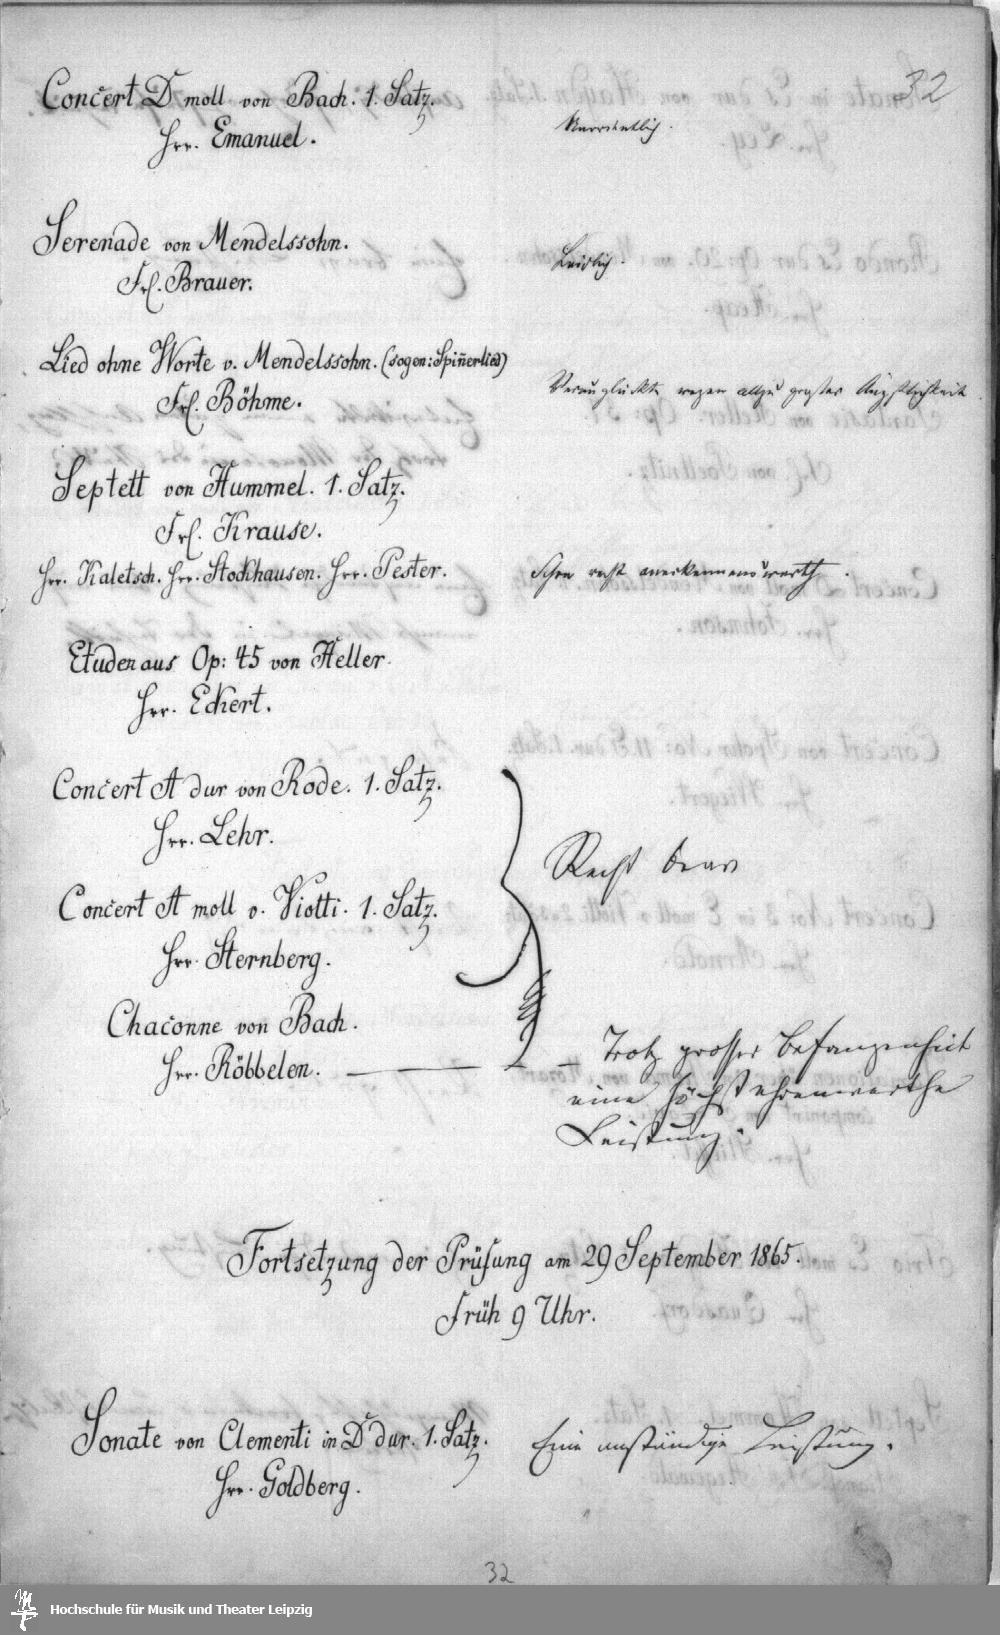 32
Concert D moll von Bach. 1. Satz.
Hrr. Emanuel.
Serenade von Mendelssohn.
Leidlich.
Frl. Brauer.
Lied ohne Worte v. Mendelssohn. (sogen: Spin̄erlied)
Verunglückte wegen allzu großer Ängstlichkeit
Frl. Böhme.
Septett von Hummel. 1. Satz.
Frl. Krause.
Hrr. Kaletsch. Hrr. Stockhausen. Hrr. Pester.
Schon recht anerkennenswerth.
Etuden aus Op: 45 von Heller.
Hrr. Eckert.
Concert A dur von Rode. 1. Satz.
Hrr. Lehr.
Recht brav
Concert A moll v. Viotti. 1. Satz.
Hrr. Sternberg.
Chaconne von Bach.
Hrr. Röbbelen. —
— Trotz grosser Befangenheit
eine höchst ehrenwerthe
Leistung.
Fortsetzung der Prüfung am 29 September 1865.
Früh 9 Uhr.
Sonate von Clementi in D dur. 1. Satz.
Eine anständige Leistung.
Hrr. Goldberg.
32
Hochschule für Musik und Theater Leipzig